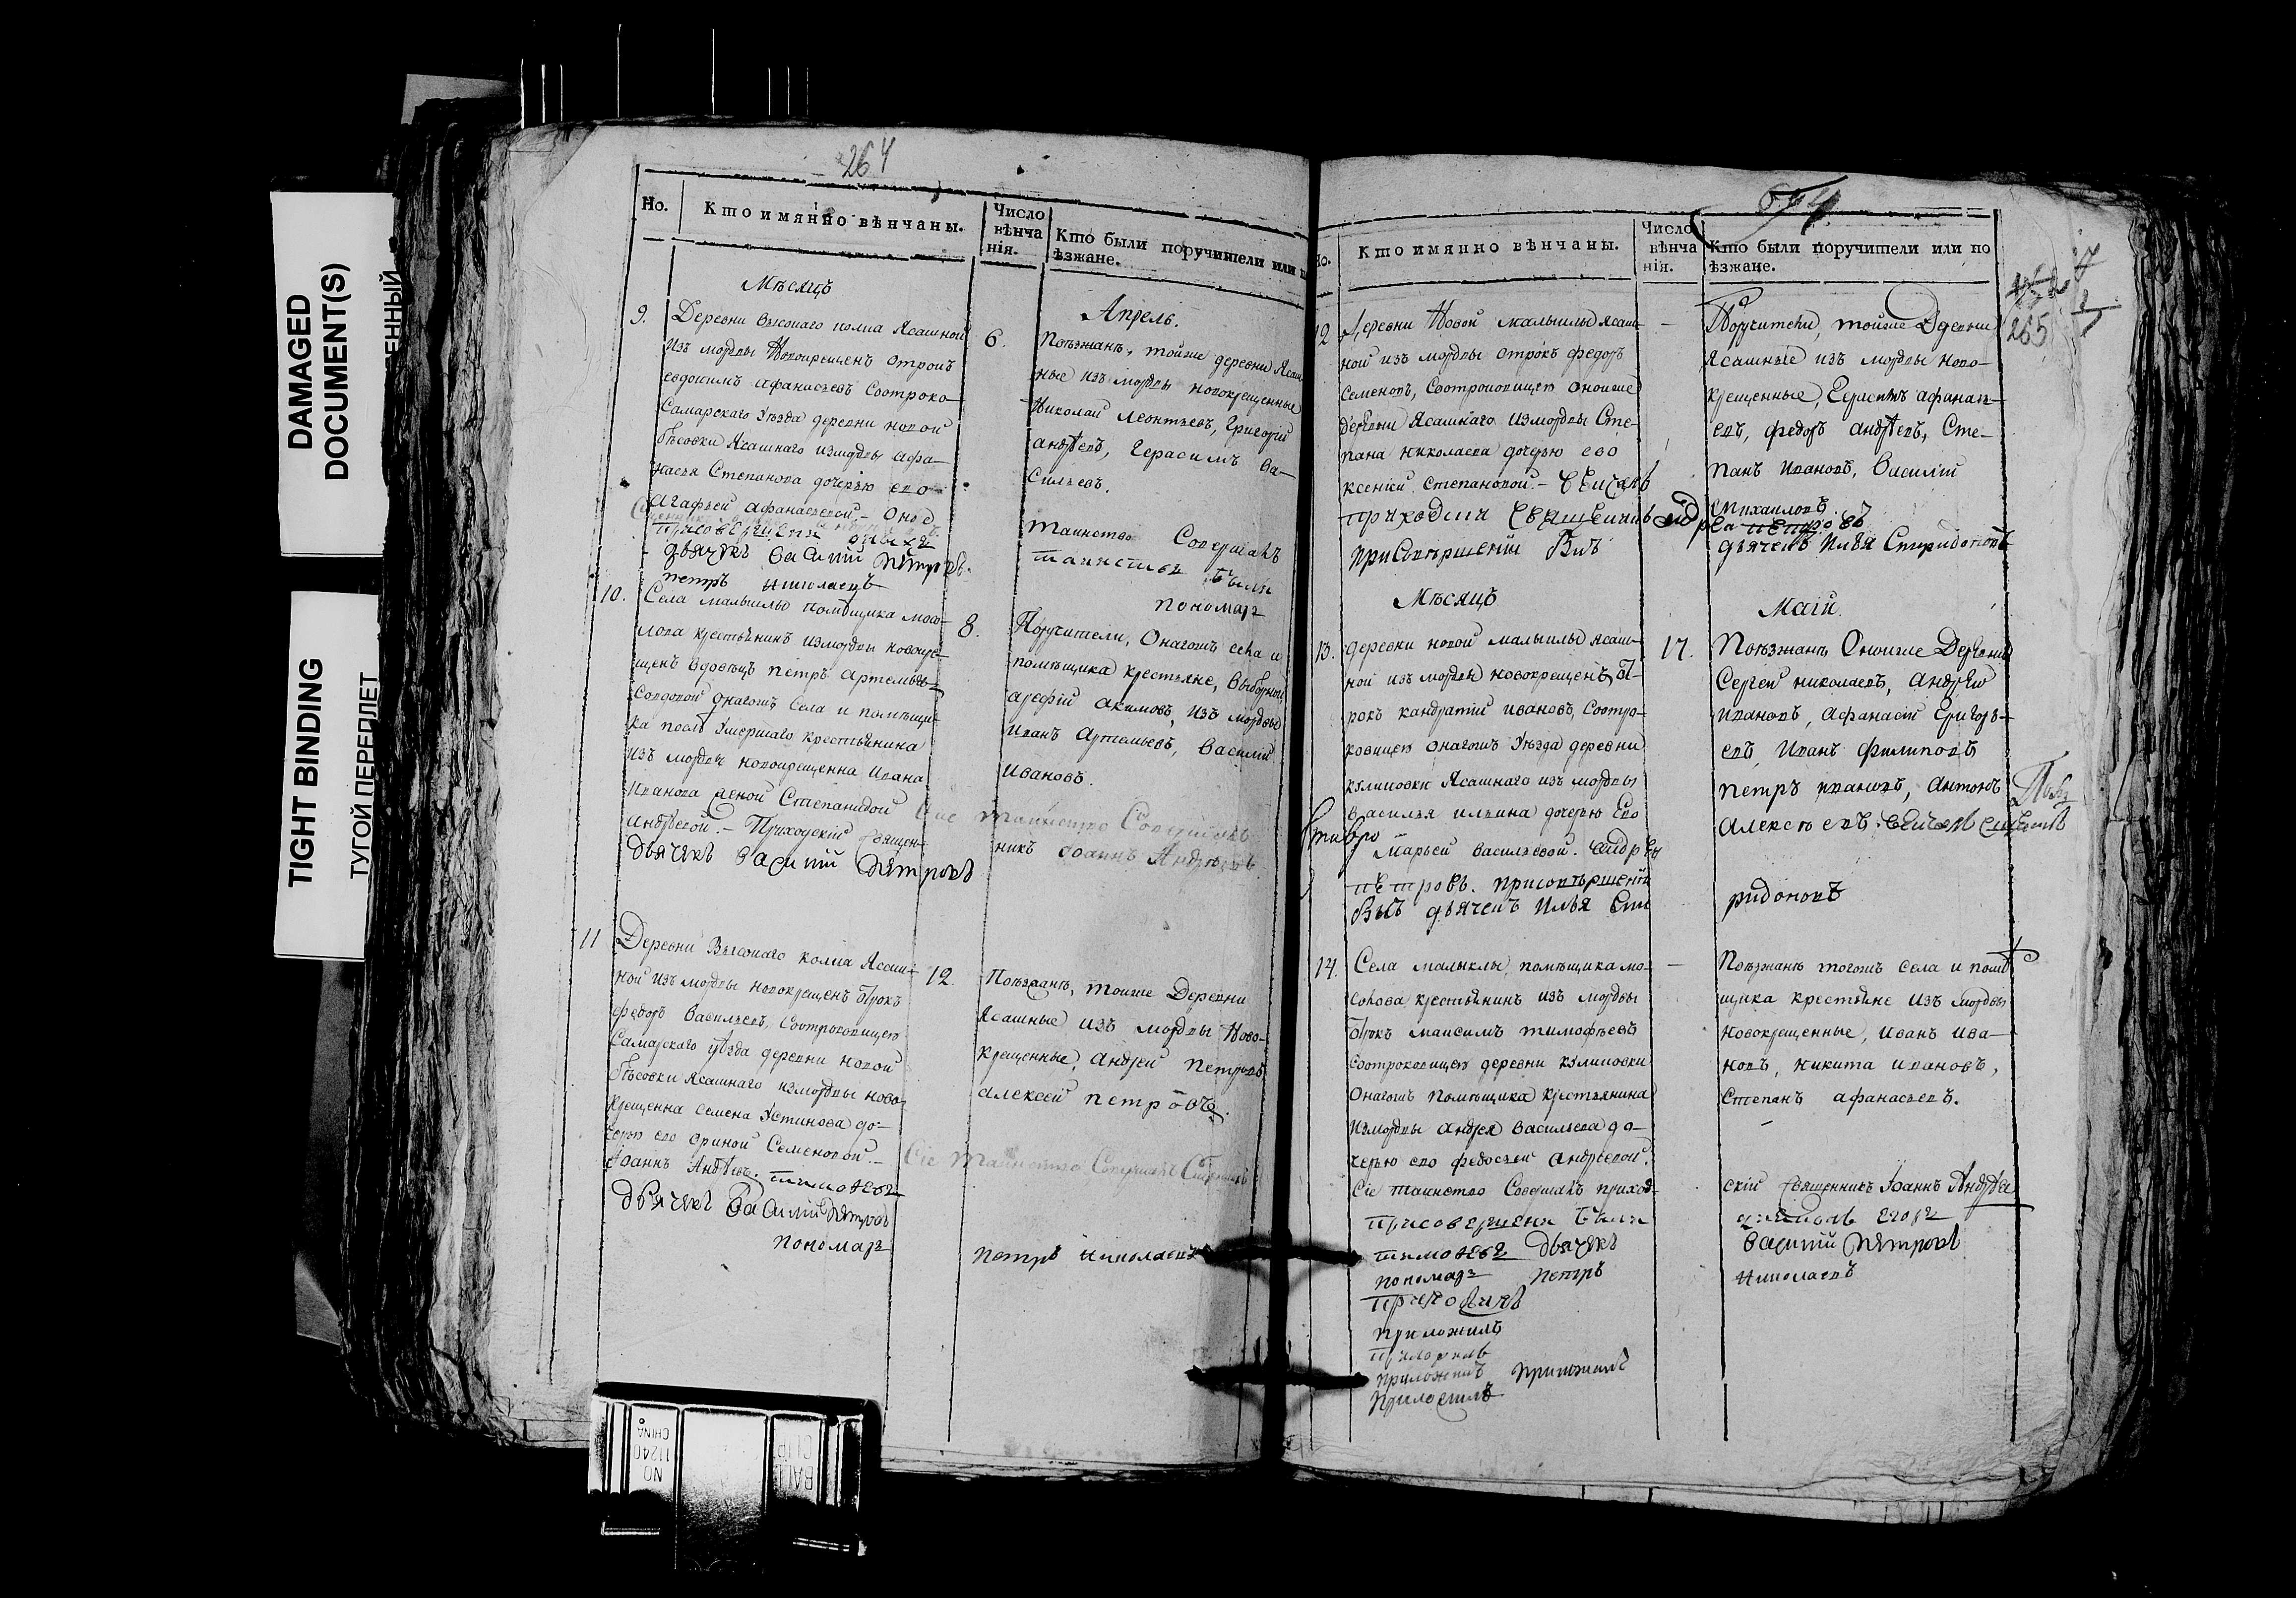 DAMAGED
DOCUMENT(S)
ЕННЫЙ
TIGHT BINDING
ТУГОЙ ПЕРЕПЛЕТ
264
Но.
Кто имянно вѣнчаны.
Число
вѣнча
нія.
Кто были поручители или
ѣзжане.
Мѣсяцъ
Апрель.
9.
Деревни Высокаго колка Ясашной
изъ мордвы новокрещенъ отрокъ
евдокимъ афанасьевъ Соотроко
Самарскаго уѣзда деревни новой
бѣсовки Ясашнаго измордвы афа
насья Степанова дочерью его
агафьей афанасьевой – оно
дьячекъ василий петровъ
петръ николаевъ
6.
Поезжанѣ, тойже деревни Ясаш
ные изъ мордвы новокрещенные
Николай Леонтьевъ, Григорій
андрѣевъ, Герасимъ ва–
сильевъ.
таинство совершалъ
таинства были
пономарь
10.
Села малыклы помѣщика мосо
лова крестьянинъ измордвы новокре–
щенъ вдовецъ петръ артемьевъ
Совдовой онагожъ села и помѣщи
ка послѣ умершаго крестьянина
изъ мордвы новокрещенна ивана
иванова женой Степанидой
андрѣевой. – Приходскій священ–
дьячекъ василий петровъ
8.
Поручители, онагожъ села и
помѣщика крестьяне, выборной
арефій акимовъ, изъ мордвы
иванъ артемьевъ, василий
ивановъ.
Сие таинство Совершалъ
никъ Іоаннъ Андрѣевъ.
11
Деревни Высокаго колка Ясаш–
ной изъ мордвы новокрещенъ отрокъ
федоръ васильевъ, соотроковицею
Самарскаго уѣзда деревни новой
бѣсовки Ясашнаго измордвы ново
крещенна семена устинова до–
черью его ориной Семеновой –
Іоаннъ Андрѣевъ. тимофевъ
дьячекъ василий петровъ
пономарь
12.
Поезжанѣ, тойже Деревни
Ясашные изъ мордвы ново–
крещенные, андрей петровъ
алексей петровъ.
Сіе таинство Совершалъ Священникъ
петръ николаевъ
265
Но.
Кто имянно вѣнчаны.
Число
вѣнча
нія.
Кто были поручители или по
ѣзжане.
12
Деревни Новой малыклы ясаш–
ной изъ мордвы отрокъ федоръ
семеновъ, соотроковицею оноиже
деревни Ясашнаго измордвы Сте–
пана николаева дочерью его
ксеніей степановой. – венчалъ
приходски священникъ
присовершеніи былъ
–
Поручители, тойже Деревни
Ясашные изъ мордвы ново–
крещенные, Герасимъ афанась–
евъ, федоръ андрѣевъ, Сте–
панъ ивановъ, василій
михаиловъ.
петровъ
дьячекъ илья Спиридоновъ
Мѣсяцъ
Маій.
13.
деревни новой малыклы ясаш–
ной изъ мордвы новокрещенъ от–
рокъ кандратій ивановъ, соотро–
ковицею онагожъ уѣзда деревни
куликовки Ясашнаго изъ мордвы
василья ильина дочерью его
марьей васильевой.
петровъ. присовершеніи
былъ дьячекъ илья Спи
17.
Поезжанѣ Оноиже Деревни
Сергей николаевъ, андрей
ивановъ, афанасій григорь–
евъ, иванъ филиповъ
петръ ивановъ, антонъ
алексеевъ. венчалъ
ридоновъ
14.
Села малыклы, помѣщика мо–
солова крестьянинъ изъ мордвы
отрокъ максимъ тимофѣевъ
соотроковицею деревни куликовки
онагожъ помѣщика крестьянина
измордвы андрея васильева до–
черью его федосьей андрѣевой.
Сіе таинство совершалъ приход–
присовершени были
тимофевъ дьячекъ
пономарь петръ
приложилъ
приложилъ приложилъ
приложилъ
–
Поезжанѣ тогожъ села и помѣ
щика крестьяне изъ мордвы
новокрещенные, иванъ ива–
новъ, никита ивановъ,
степанъ афанасьевъ.
скій священникъ Іоаннъ Андрѣевъ
дияконъ егоръ
василий петровъ
николаевъ